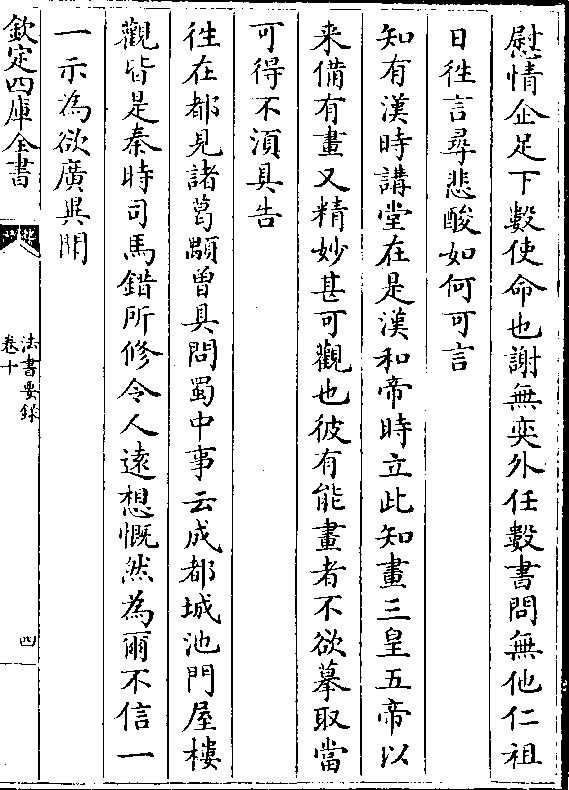 慰情企足下數使命也謝無奕外任數書問無他仁祖
日徃言尋悲酸如何可言
知有漢時講堂在是漢和帝時立此知畫三皇五帝以
来備有畫又精妙甚可觀也彼有能畫者不欲摹取當
可得不湏具告
徃在都見諸葛顒曽具問蜀中事云成都城池門屋樓
觀皆是秦時司馬錯所修令人遠想慨然為爾不信一
一示為欲廣異聞
欽定四庫全書
法書要錄
卷十
四